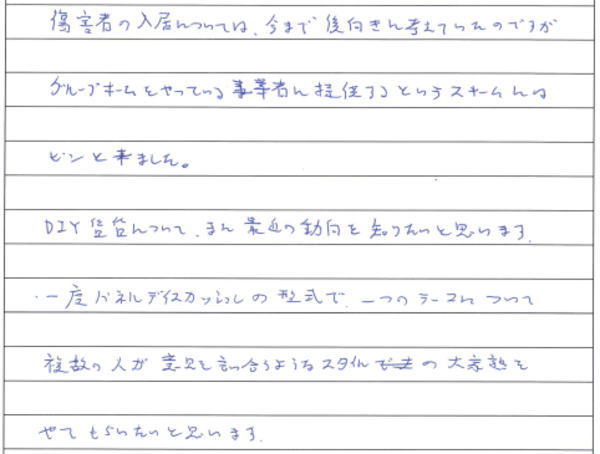 傷害者の入居については、今まで後向きに考えていたのですが
グループホームをやっている事業者に提供するというスキームには
ピンと来ました。
DIY賃貸について、また最近の動向を知りたいと思います。
・一度パネルディスカッションの型式で、一つのテーマについて
複数の人が意見を言い合うようなスタイルの大家塾を
やてもらいたいと思います。